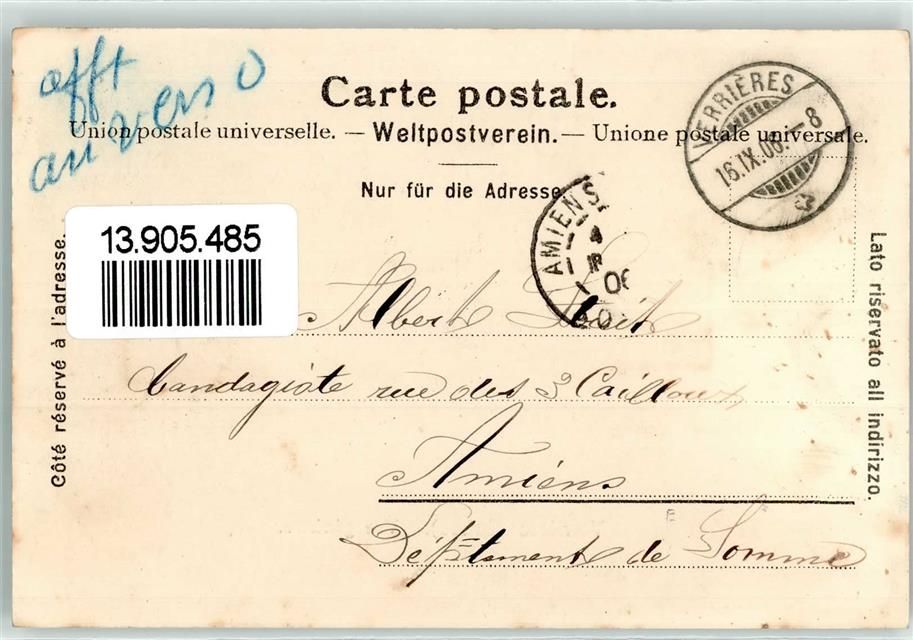 afft
au verso
Carte postale.
Union postale universelle. — Weltpostverein. — Unione postale universale.
Nur für die Adresse
VERRIÈRES
16.IX.06.–8
AMIENS
13.905.485
Côté réservé à l'adresse.
Lato riservato all indirizzo.
Albert
bandagiste rue des 3 Cailloux
Amiens
Dép.tement de Somme